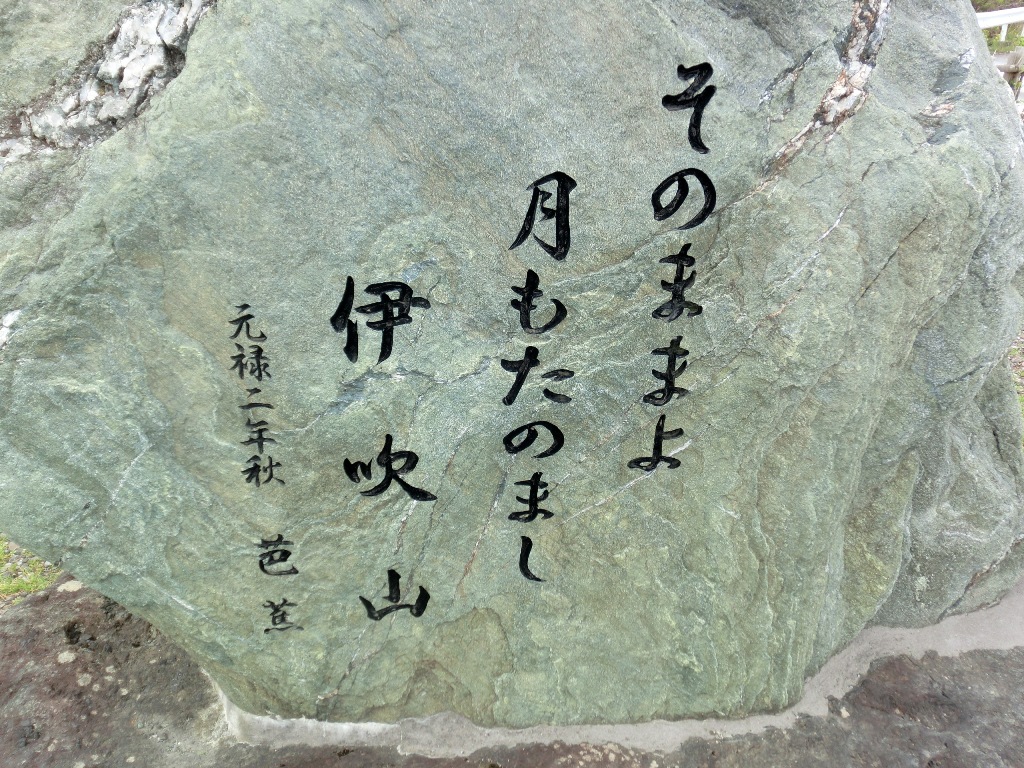 そのままよ
月もたのまし
伊吹山
元禄二年秋 芭蕉